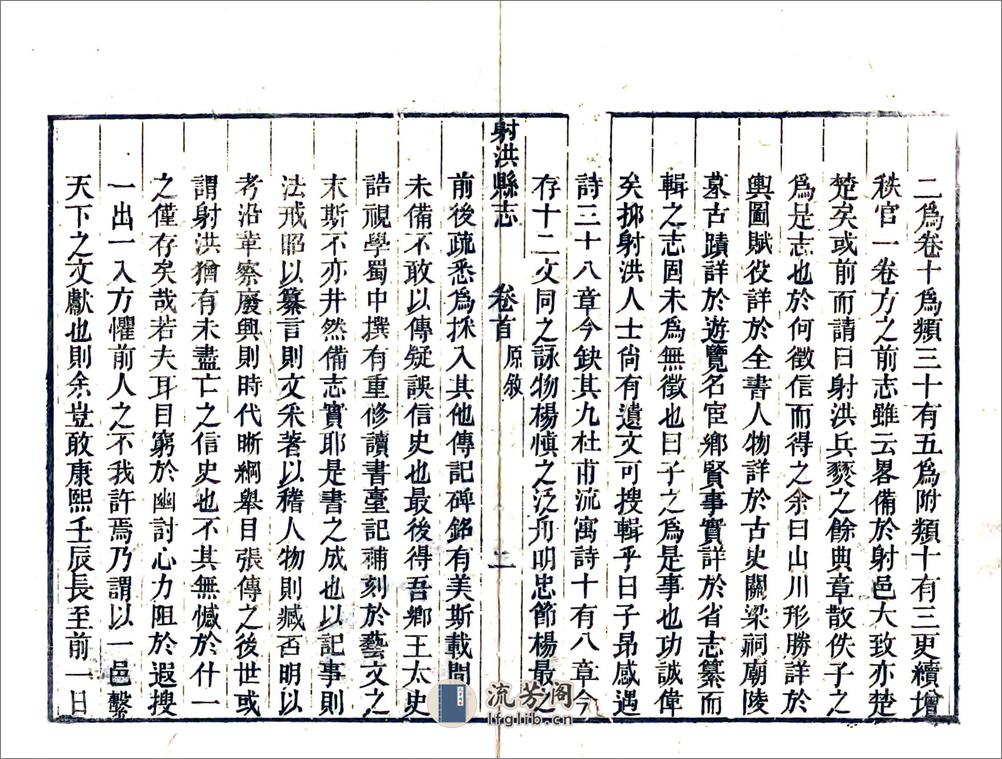 二爲卷十爲類三十有五爲附類十有三更續增
秩官一卷方之前志雖云畧備於射邑大致亦楚
楚矣或前而請曰射洪兵燹之餘典章散佚子之
爲是志也於何徵信而得之余曰山川形勝詳於
輿圖賦役詳於全書人物詳於古史關梁祠廟陵
墓古蹟詳於遊覽名宦鄉賢事實詳於省志纂而
輯之志固未爲無徵也曰子之爲是事也功誠偉
矣抑射洪人士尙有遺文可搜輯乎曰子昂感遇
詩三十八章今缺其九杜甫流寓詩十有八章今
存十二文同之詠物楊愼之泛舟明忠節楊最之
射洪縣志 卷首 原敘 二
前後疏悉爲採入其他傳記碑銘有美斯載間有
未備不敢以傳疑誤信史也最後得吾鄉王太史
誥視學蜀中撰有重修讀書臺記補刻於藝文之
末斯不亦井然備志實耶是書之成也以記事則
法戒昭以纂言則文采著以稽人物則臧否明以
考沿革察廢興則時代晰綱舉目張傳之後世或
謂射洪猶有未盡亡之信史也不其無憾於什一
之僅存矣哉若夫耳目窮於幽討心力阻於遐搜
一出一入方懼前人之不我許焉乃謂以一邑繫
天下之文獻也則余豈敢康熙壬辰長至前一日
流芳阁
lfglib.cn